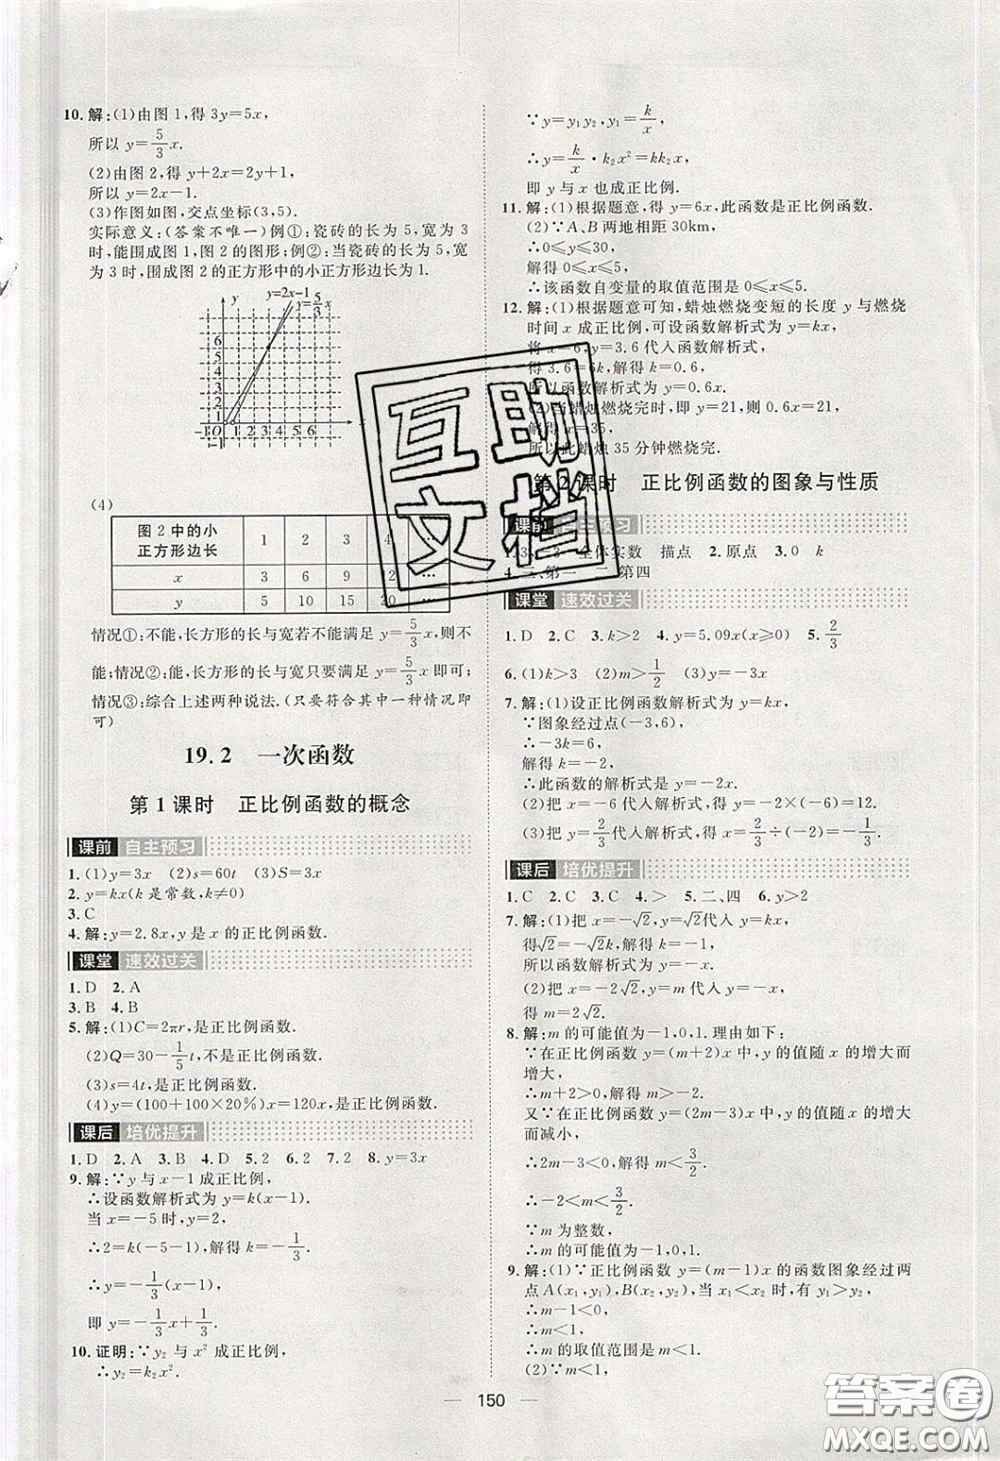 10. 解:(1)由图 1,得 3y=5x,
所以 y=5/3x.
(2)由图 2,得 y+2x=2y+1,
所以 y=2x-1.
(3)作图如图,交点坐标(3,5).
实际意义:(答案不唯一)例①:瓷砖的长为 5,宽为
3时,能围成图1,图2的图形;例②:当瓷砖的长为 5,宽
为 3 时,围成图 2 的正方形中的小正方形边长为 1.
y y=2x-1
y=5/3x
6
5
4
3
2
1
-1 O 1 2 3 4 5 6 x
-1
(4)
图 2 中的小正方形边长 1 2 3 4 …
x 3 6 9 12 …
y 5 10 15 20 …
情况①:不能,长方形的长与宽若不能满足 y=5/3x,则不
能;情况②:能,长方形的长与宽只要满足 y=5/3x 即可;
情况③:综合上述两种说法.(只要符合其中一种情况即
可)
19.2 一次函数
第 1 课时 正比例函数的概念
课前 自主预习
1. (1)y=3x (2)s=60t (3)S=3x
2. y=kx(k 是常数,k≠0)
3. C
4. 解:y=2.8x,y 是 x 的正比例函数.
课堂 速效过关
1. D 2. A
3. B 4. B
5. 解:(1)C=2πr,是正比例函数.
(2)Q=30-1/5t,不是正比例函数.
(3)s=4t,是正比例函数.
(4)y=(100+100×20%)x=120x,是正比例函数.
课后 培优提升
1. D 2. A 3. B 4. D 5. 2 6. 2 7. 2 8. y=3x
9. 解:∵y 与 x-1 成正比例,
∴设函数解析式为 y=k(x-1).
当 x=-5时,y=2,
∴2=k(-5-1),解得 k=-1/3.
∴y=-1/3(x-1),
即 y=-1/3x+1/3.
10. 证明:∵y₂ 与 x² 成正比例,
∴y₂=k₂x².
∵y=y₁y₂,y₁=k/x,
∴y=k/x·k₂x²=kk₂x.
即 y 与 x 也成正比例.
11. 解:(1)根据题意,得 y=6x,此函数是正比例函数.
(2)∵A、B 两地相距 30km,
∴0≤y≤30,
解得 0≤x≤5.
∴该函数自变量的取值范围是 0≤x≤5.
12. 解:(1)根据题意可知,蜡烛燃烧变短的长度 y 与燃烧
时间 x 成正比例,可设函数解析式为 y=kx,
将 x=6,y=3.6代入函数解析式,
得 3.6=6k,解得 k=0.6,
所以函数解析式为 y=0.6x.
(2)当蜡烛燃烧完时,即 y=21,则 0.6x=21,
解得 x=35,
所以此蜡烛 35 分钟燃烧完.
第 2 课时 正比例函数的图象与性质
课前 自主预习
全体实数 描点 2. 原点 3. 0 k
第四
课堂 速效过关
1. D 2. C 3. k>2 4. y=5.09x(x≥0) 5. 2/3
6. (1)k>3 (2)m>1/2 (3)y=-3x
7. 解:(1)设正比例函数解析式为 y=kx,
∵图象经过点(-3,6),
∴-3k=6,
解得 k=-2,
∴此函数的解析式为 y=-2x.
(2)把 x=-6 代入解析式,得 y=12.
(3)把 y=2/3代入解析式,x=2/3÷(-2)=-1/3.
课后 培优提升
1. C 2. C 3. C 4. > 5. 二、四 6. y>2
7. 解:(1)把 x=-√2,y=√2代入 y=kx,
得√2=-√2k,解得 k=-1,
所以函数解析式为 y=-x.
(2)把 x=-2√2,y=m代入 y=-x,
得 m=2√2.
8. 解:m 的可能值为-1,0,1. 理由如下:
∵在正比例函数 y=(m+2)x 中,y的值随 x 的增大而
增大,
∴m+2>0,解得 m>-2.
又∵在正比例函数 y=(2m-3)x 中,y 的值随 x 的增大
而减小,
∴2m-3<0,解得 m<3/2.
∴-2<m<3/2.
∵m 为整数,
∴m的可能值为-1,0,1.
9. 解:(1)∵正比例函数 y=(m-1)x 的函数图象经过两
点 A(x₁,y₁),B(x₂,y₂),当 x₁<x₂时,有 y₁>y₂,
∴m-1<0,
∴m<1,
∴m 的取值范围是 m<1.
(2)∵m<1,
150
互助文档
答案圈
MXQE.COM